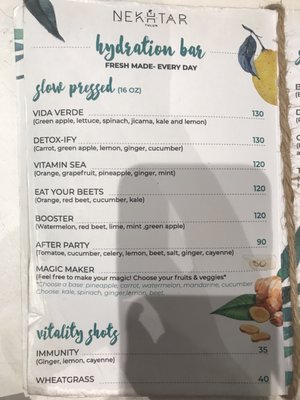 NEKHTAR
TULUM
hydration bar
FRESH MADE- EVERY DAY
slow pressed (16 OZ)
VIDA VERDE 130
(Green apple, lettuce, spinach, jicama, kale and lemon)
DETOX-IFY 130
(Carrot, green apple, lemon, ginger, cucumber)
VITAMIN SEA 120
(Orange, grapefruit, pineapple, ginger, mint)
EAT YOUR BEETS 120
(Orange, red beet, cucumber, kale)
BOOSTER 120
(Watermelon, red beet, lime, mint ,green apple)
AFTER PARTY 90
(Tomatoe, cucumber, celery, lemon, beet, salt, ginger, cayenne)
MAGIC MAKER
(Feel free to make your magic! Choose your fruits & veggies*
*Choose a base: pineapple, carrot, watermelon, mandarine, cucumber
Choose: kale, spinach, ginger, lemon, beet.
vitality shots
IMMUNITY 35
(Ginger, lemon, cayenne)
WHEATGRASS 40